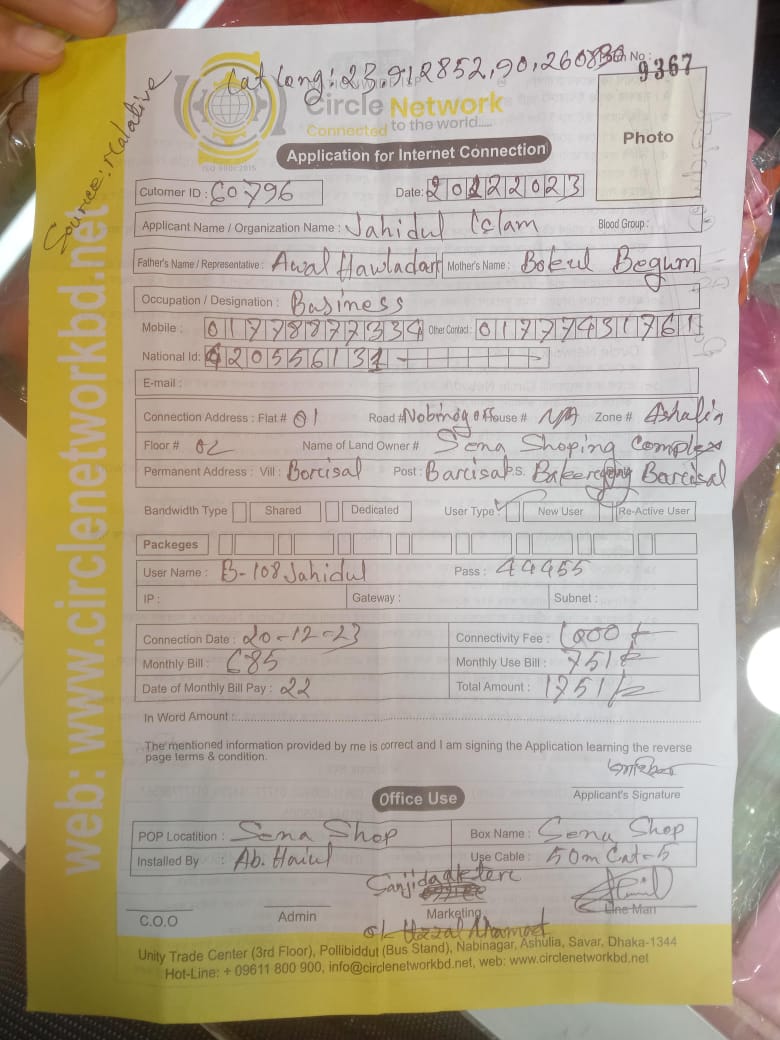 Lat Long: 23.912852, 90.260830
Form No: 9367
Source: Relative
Circle Network
Connected to the world.....
ISO 9001:2015
Photo
Application for Internet Connection
Cutomer ID : 60796 Date: 20122023
Applicant Name / Organization Name : Jahidul Islam Blood Group :
Father's Name / Representative : Awal Hawladar Mother's Name : Bokul Begum
Occupation / Designation : Business
Mobile : 01778877334 Other Contact : 01777431761
National Id: 4205561131
E-mail :
Connection Address : Flat # 01 Road # House # N/A Zone # Ashalia
Floor # 02 Name of Land Owner # Sena Shoping Complex
Permanent Address : Vill : Borcisal Post : Barcisal P.S. Bakergong Barcisal
Bandwidth Type Shared Dedicated User Type New User Re-Active User
Packeges
User Name : B-108Jahidul Pass : 44455
IP : Gateway : Subnet :
Connection Date : 20-12-23 Connectivity Fee : 1000 t
Monthly Bill : 685 Monthly Use Bill : 751 t
Date of Monthly Bill Pay : 22 Total Amount : 1751 t
In Word Amount :
The mentioned information provided by me is correct and I am signing the Application learning the reverse
page terms & condition.
Applicant's Signature
Office Use
POP Locatition : Sena Shop Box Name : Sena Shop
Installed By : Ab. Use Cable : 50m Cat-5
Sanjida
C.O.O Admin Marketing Line Man
ok
Unity Trade Center (3rd Floor), Pollibiddut (Bus Stand), Nabinagar, Ashulia, Savar, Dhaka-1344
Hot-Line: + 09611 800 900, info@circlenetworkbd.net, web: www.circlenetworkbd.net
web: www.circlenetworkbd.net